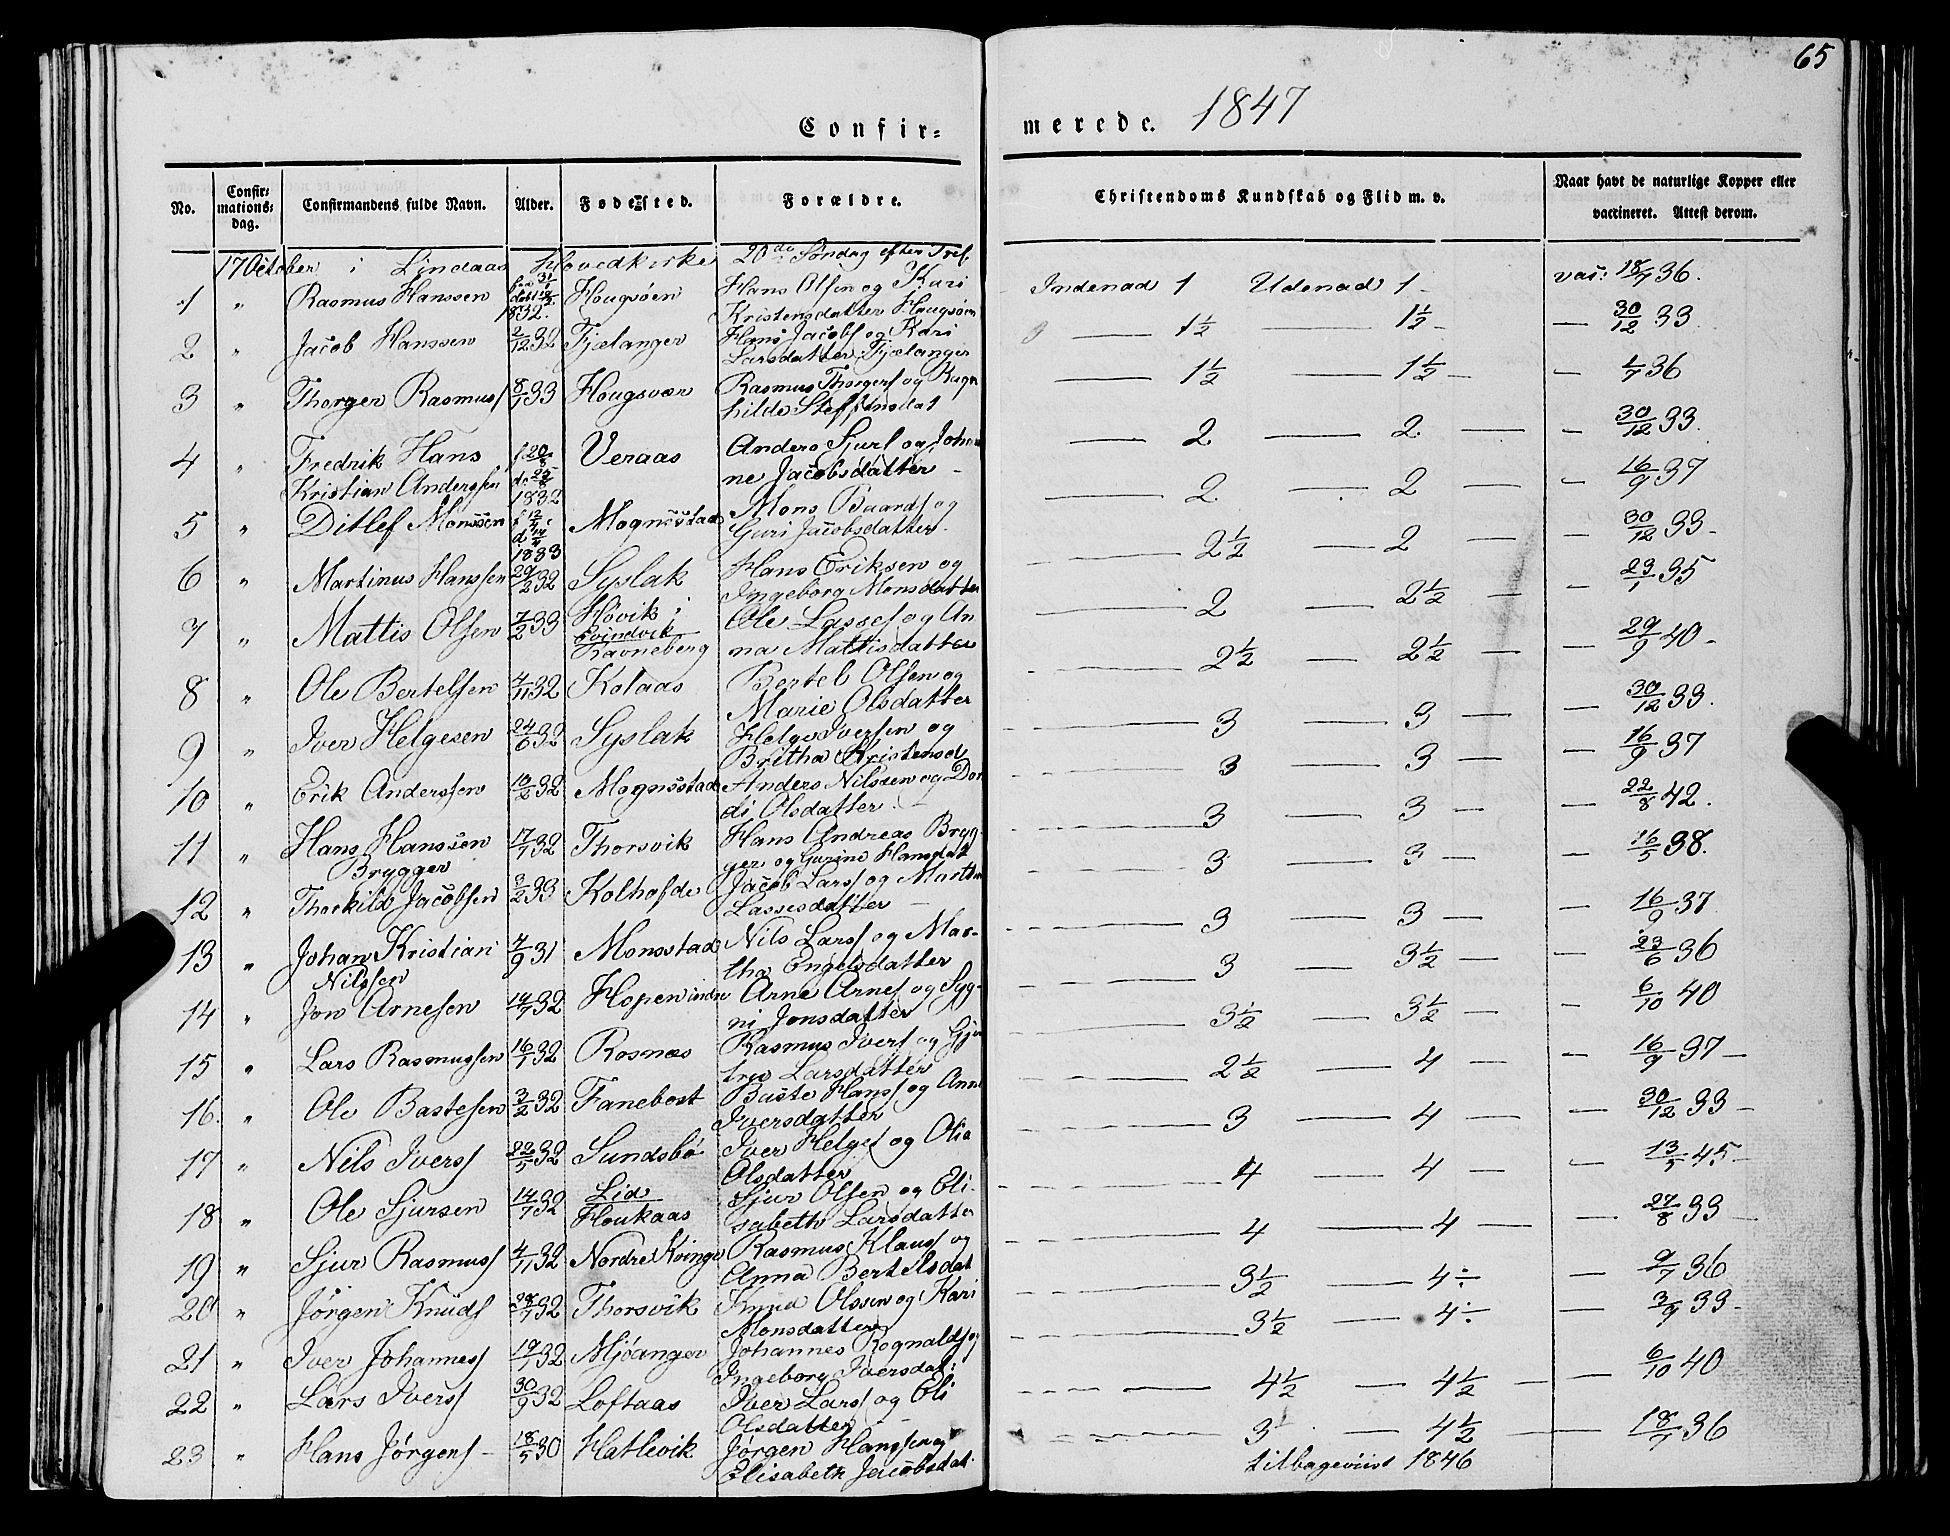 65
Confir= merede. 1847
No. Confir= mations= dag. Confirmandens fulde Navn. Alder. Fødested. Forældre. Christendoms Kundskab og Flid m. v. Naar havt de naturlige Kopper eller vaccineret. Attest derom.
17 October i Lindaas Hovedkirke 20de Søndag efter Tref.
1 " Rasmus Hanssen 1832. Hougsøen Hans Olsen og Kari Kristensdatter Hougsøen Indenad 1 Udenad 1 - vac: 18/7 36.
2 " Jacob Hanssen 2/12 32 Fjelanger Hans Jacobs og Kari Larsdatter Fjelanger — 1½ — 1½ - — 30/12 33.
3 " Thorger Rasmuss 8/1 33 Hougsvær Rasmus Thorgers og Ragnhilde Steffensdat — 1½ — 1½ — - 4/7 36
4 " Fredrik Hans Kristian Anderssen f 20/8 1832 Veraas Anders Sjurs og Johanne Jacobsdatter - — 2 — 2 — - 30/12 33.
5 " Ditlef Monssen f 12/4 d 14/4 1833 Mognsstad Mons Baards og Guri Jacobsdatter — 2 — 2 — - 16/9 37
6 " Martinus Hanssen 29/2 32 Syslak Hans Eriksen og Ingeborg Monsdatter — 2½ — 2 — - 30/12 33 -
7 " Mattis Olsen 7/2 33 Høvik i Evindvik Ravneberg Ole Lasses og Anna Mattisdatter — 2 — 2½ — - 23/7 35
8 " Ole Bertelsen 4/11 32 Kolaas Bertel Olsen og Marie Olsdatter — 2½ — 2½ — - 29/9 40 -
9 " Iver Helgesen 24/6 32 Syslak Helge Iversen og Britha Kristensd — 3 — 3 — - 30/12 33.
10 " Erik Anderssen 10/2 32 Mognsstad Anders Nilssen og Dordi Olsdatter — 3 — 3 — - 16/9 37
11 " Hans Hanssen Brygger 17/7 32 Thorsvik Hans Andreas Brygger og Gurine Hansdat — 3 — 3 — — 22/8 42.
12 " Thorkild Jacobsen 3/2 33 Kolhofde Jacob Larss og Martha Lassesdatter — 3 — 3 — — 16/5 38.
13 " Johan Kristian Nilssen 4/9 31 Monsstad Nils Larss og Martha Engelsdatter — 3 — 3 — — 16/9 37
14 " Jon Arnesen 19/7 32 Hopen indre Arne Arnes og Sygni Jonsdatter — 3 — 3½ — — 23/6 36
15 " Lars Rasmussen 16/1 32 Rosnæs Rasmus Ivers og Larsdatter — 3½ — 3½ — — 6/10 40
16. " Ole Bastesen 3/2 32 Fanebost Baste Hanss og Anna Iversdatter — 2½ — 4 — — 16/9 37 —
17 " Nils Iverss 22/5 32 Sundsbø Iver Helges og Olia Olsdatter — 3 — 4 — — 30/12 33 —
18 " Ole Sjursen 14/7 32 Lid Houkaas Sjur Olsen og Elisabeth Larsdatter — 4 — 4 — — 13/5 45 —
19 " Sjur Rasmuss 4/11 32 Nordre Kvinge Rasmus Klauss og Anna Bertelsdat — 4 — 4 — — 27/8 33 —
20 " Jørgen Knuds 28/7 32 Thorsvik Knud Olssen og Kari Monsdatter — 3½ — 4 ÷ — 9/7 36
21 " Iver Johanness 19/1 32 Mjóanger Johannes Rognalds og Ingeborg Iversdat: — 3½ — 4 ÷ — 3/9 33 -
22 " Lars Iverss 30/9 32 Loftaas Iver Larss og Eli Olsdatter — 4½ — 4½ — — 6/10 40
23 " Hans Jørgens - 18/5 30 Hatlevik Jørgen Hanssen og Elisabeth Jacobsdat. — 3 — 4½ — — 18/7 36
tilbageviist 1846